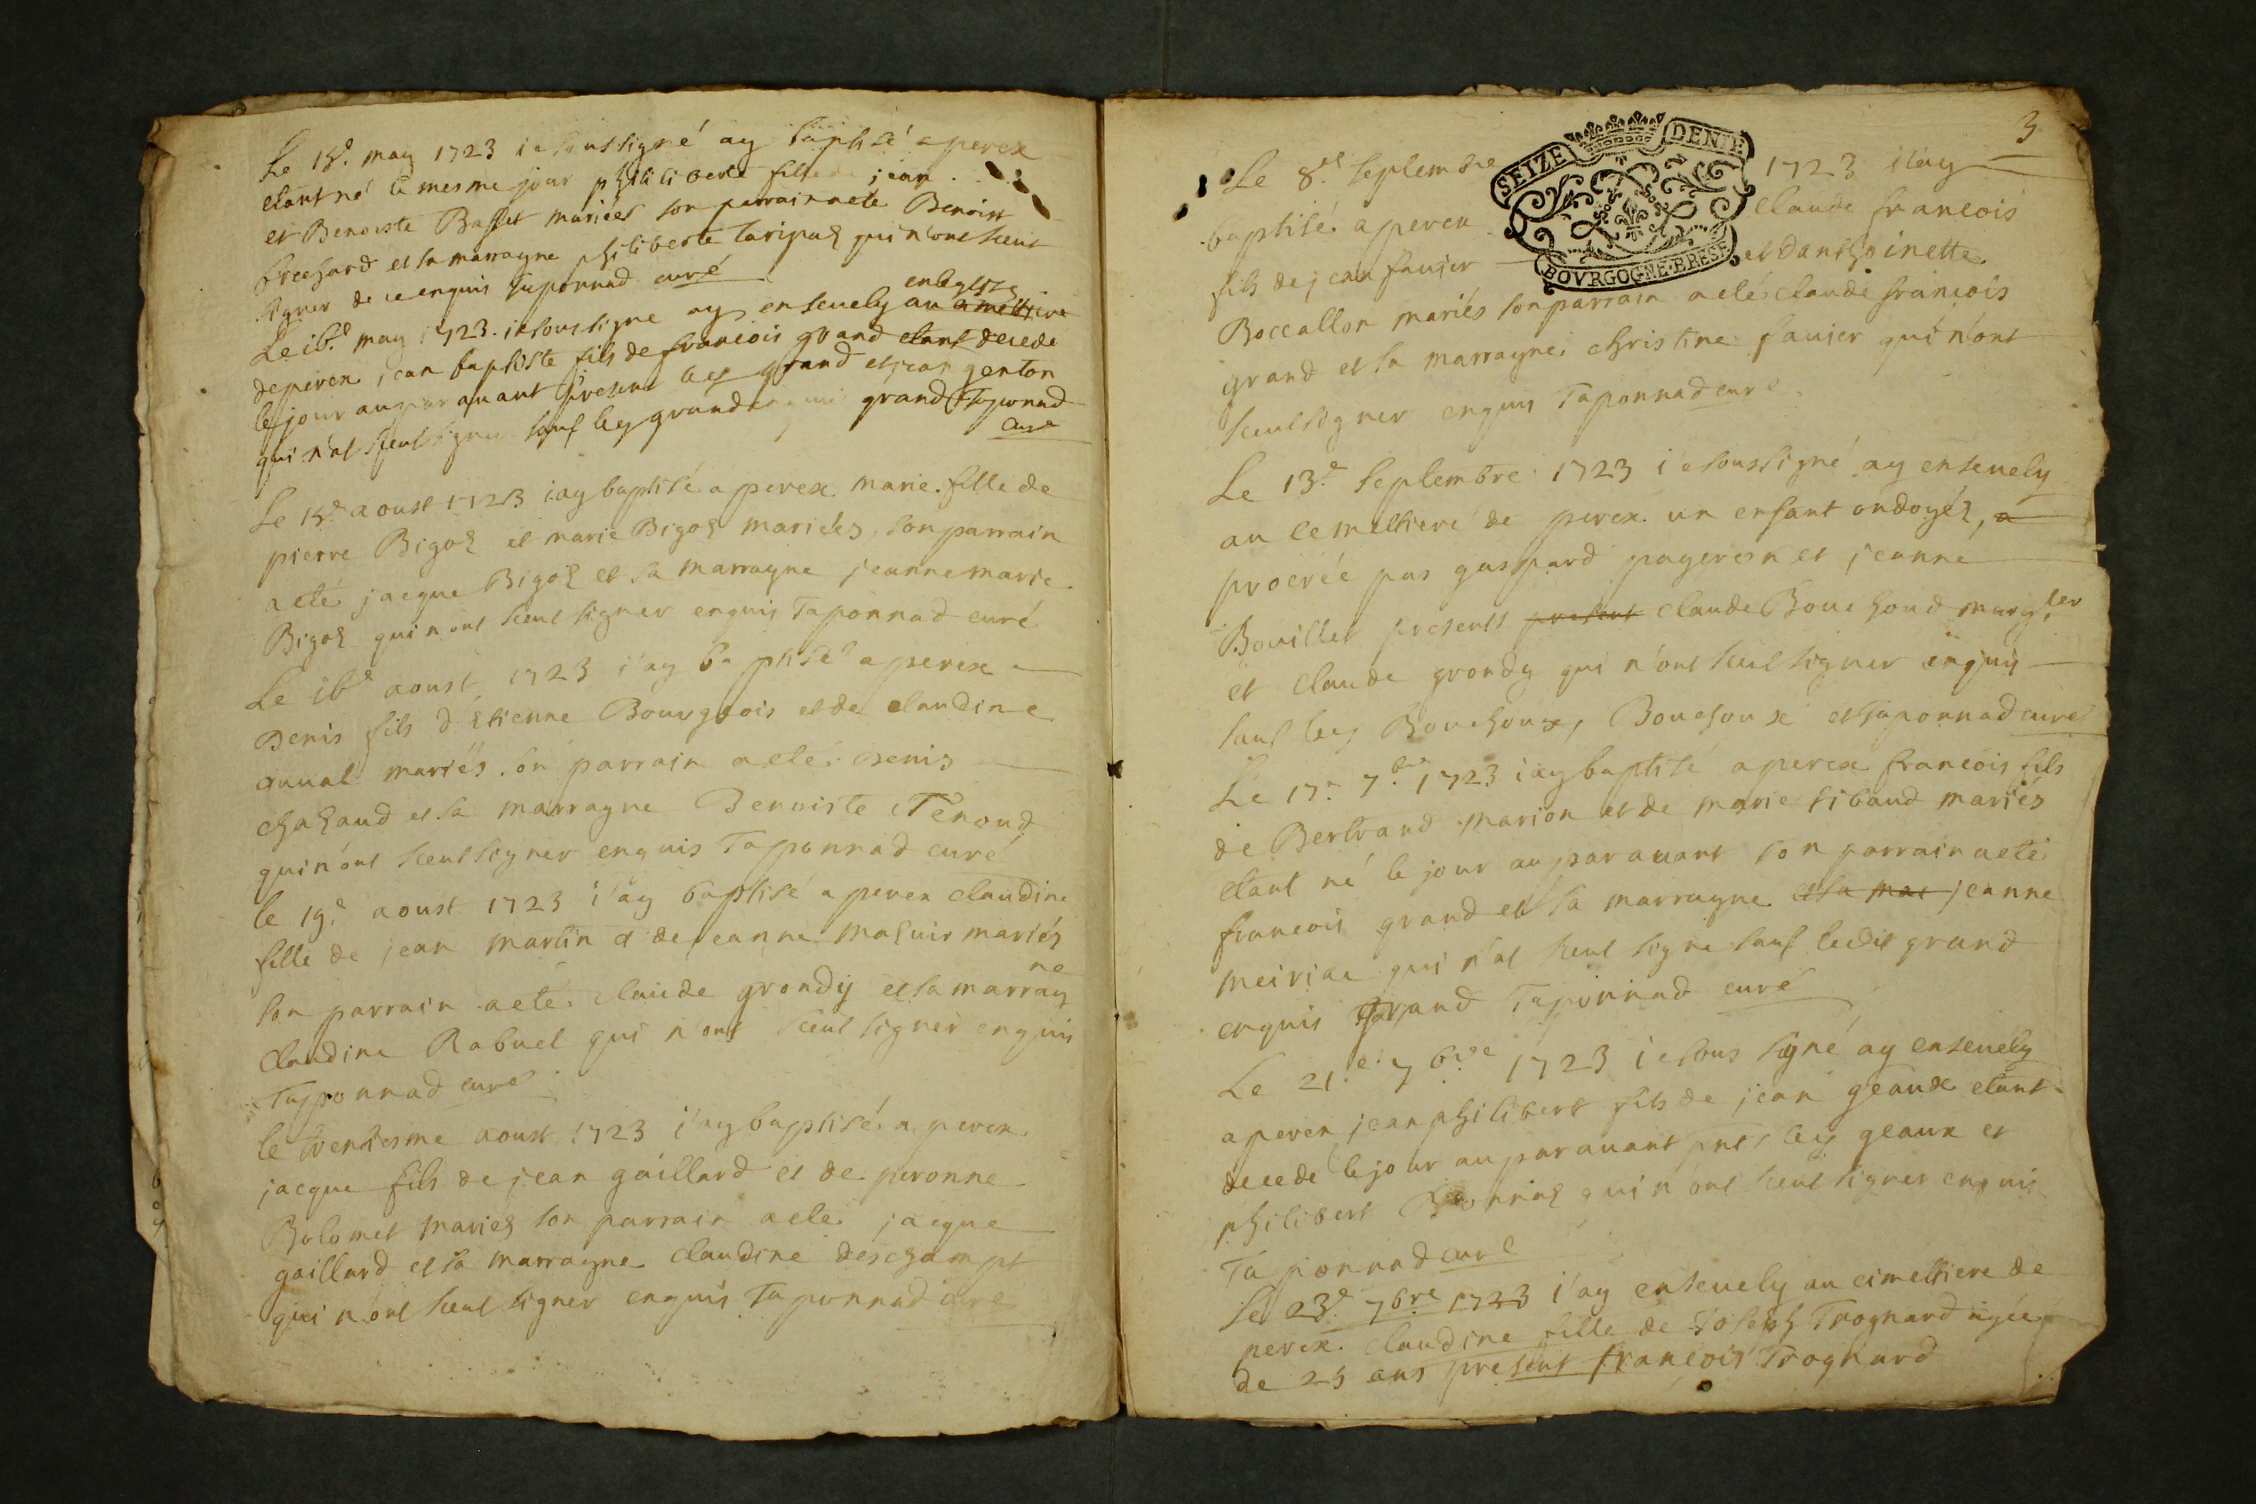 Le 15e. may 1723 ie soussigné ay baptisé a perex
etant né le mesme jour philiberte fille de jean
et Benoiste Basset mariées son parrain a eté Benoist
brechard et sa marragne philiberte Taripaz qui n'ont sceut
signer de ce enquis Taponnad curé
enleglize
Le 16e. may 1723. ie soussigne ay ensevely au cimettiere
de perex jean baptiste fils de francois grand etant decede
le jour auparavant present ley grand et jean genton
qui n'at sceut signer sauf ley grand enquis grand Taponnad
Curé
Le 15e aoust 1723 i'ay baptisé a perex marie fille de
pierre Bigoz et marie Bigoz mariées, son parrain
a eté jacque Bigoz et sa marragne jeanne marie
Bigoz qui n'ont sceut signer enquis Taponnad curé
Le 16e aoust 1723 i'ay baptisé a perex
Denis fils d'Etienne Bourgeois et de claudine
auual mariés son parrain a eté Denis
chahaud et sa marragne Benoiste Tenoud
qui n'ont sceut signer enquis Taponnad curé
le 19e aoust 1723 i'ay baptisé a perex claudine
fille de jean martin & de jeanne mahuir mariéz
ne
son parrain a eté claude grondy et sa marrag
claudine Rabuel qui n'ont sceut signer enquis
Taponnad curé
le trentiesme aoust 1723 i'ay baptisé a perex
jacque fils de jean gaillard et de peronne
Bolomet mariez son parrain a eté jacque
gaillard et sa marragne claudine deschampt
qui n'ont sceut signer enquis Taponnad curé
3
SEIZE DENIE
BOVRGOGNE·BRESE
Le 8e septembre 1723 i'ay
baptisé a perex claude francois
fils de jean faujer et danthoinette
Boccallon mariés son parrain a eté claude francois
grand et sa marragne christine faujer qui n'ont
sceut signer enquis Taponnad curé
Le 13e septembre 1723 ie soussigné ay ensevely
au cemettiere de perex un enfant ondoyéz, a
procréé pas gaspard pageron et jeanne
Bouillet presents present claude Bouchoud marg.ler
et claude grondy qui n'ont sceut signer enquis
sauf ley Bouchoux, Bouchoux et Taponnad curé
Le 17e 7bre 1723 i'ay baptisé a perex francois fils
de Bertrand marion et de marie sibaud mariés
etant né le jour auparavant son parrain a eté
francois grand et sa marragne et sa mar jeanne
meiriae qui n'at sceut signe sauf ledit grand
enquis grand Taponnad curé
Le 21.e 7bre 1723 ie sous signé ay ensevely
a perex jean philibert fils de jean geaux etant
decede le jour auparavant pnts ley geaux et
philibert qui n'ont sceut signer enquis
Taponnad curé
Le 23e 7bre 1723 i'ay ensevely au cimettiere de
perex claudine fille de Joseph Trognard agée
de 25 ans present francois Trognard